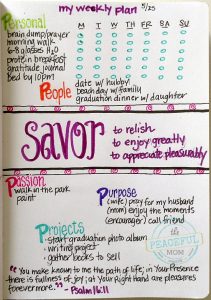 my weekly plan 5/25
Personal
M T W TH FR SA SU
brain dump/prayer
morning walk
6-8 glasses H2O
protein breakfast
gratitude journal
Bed by 10pm
People
date w/ hubby!
beach day w/ family
graduation dinner w/ daughter
SAVOR
to relish
to enjoy greatly
to appreciate pleasurably
Passion
walk in the park
paint
Purpose
(wife) pray for my husband
(mom) enjoy the moments
(encourager) call friend
Projects
- start graduation photo album
- write first project
- gather books to sell
THE PEACEFUL MOM
"You make known to me the path of life; in Your Presence
there is fullness of joy; at Your Right Hand are pleasures
forevermore." - Psalm 16:11